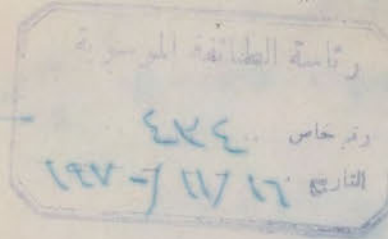 رئاسة الطائفة الموسوية
رقم خاص .. ٤٣٤
التاريخ ١٦ / ١١ / ١٩٧-